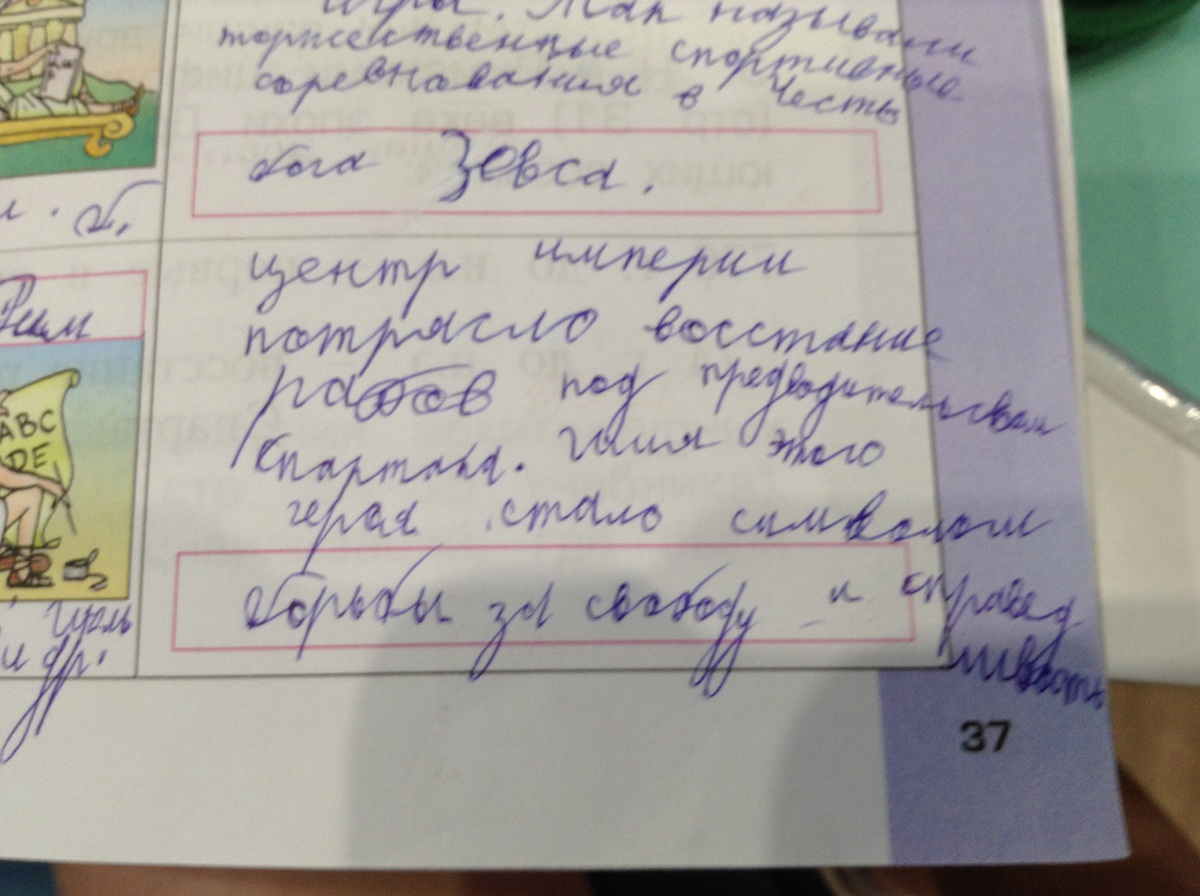 игры. Так называли
торжественные спортивные
соревнования в честь
бога Зевса.
Рим
ABC
DE
и др.
центр империи
потрясло восстание
рабов под предводительсвом
Спартака. Имя этого
героя стало символом
борьбы за свободу и справед
ливость
37